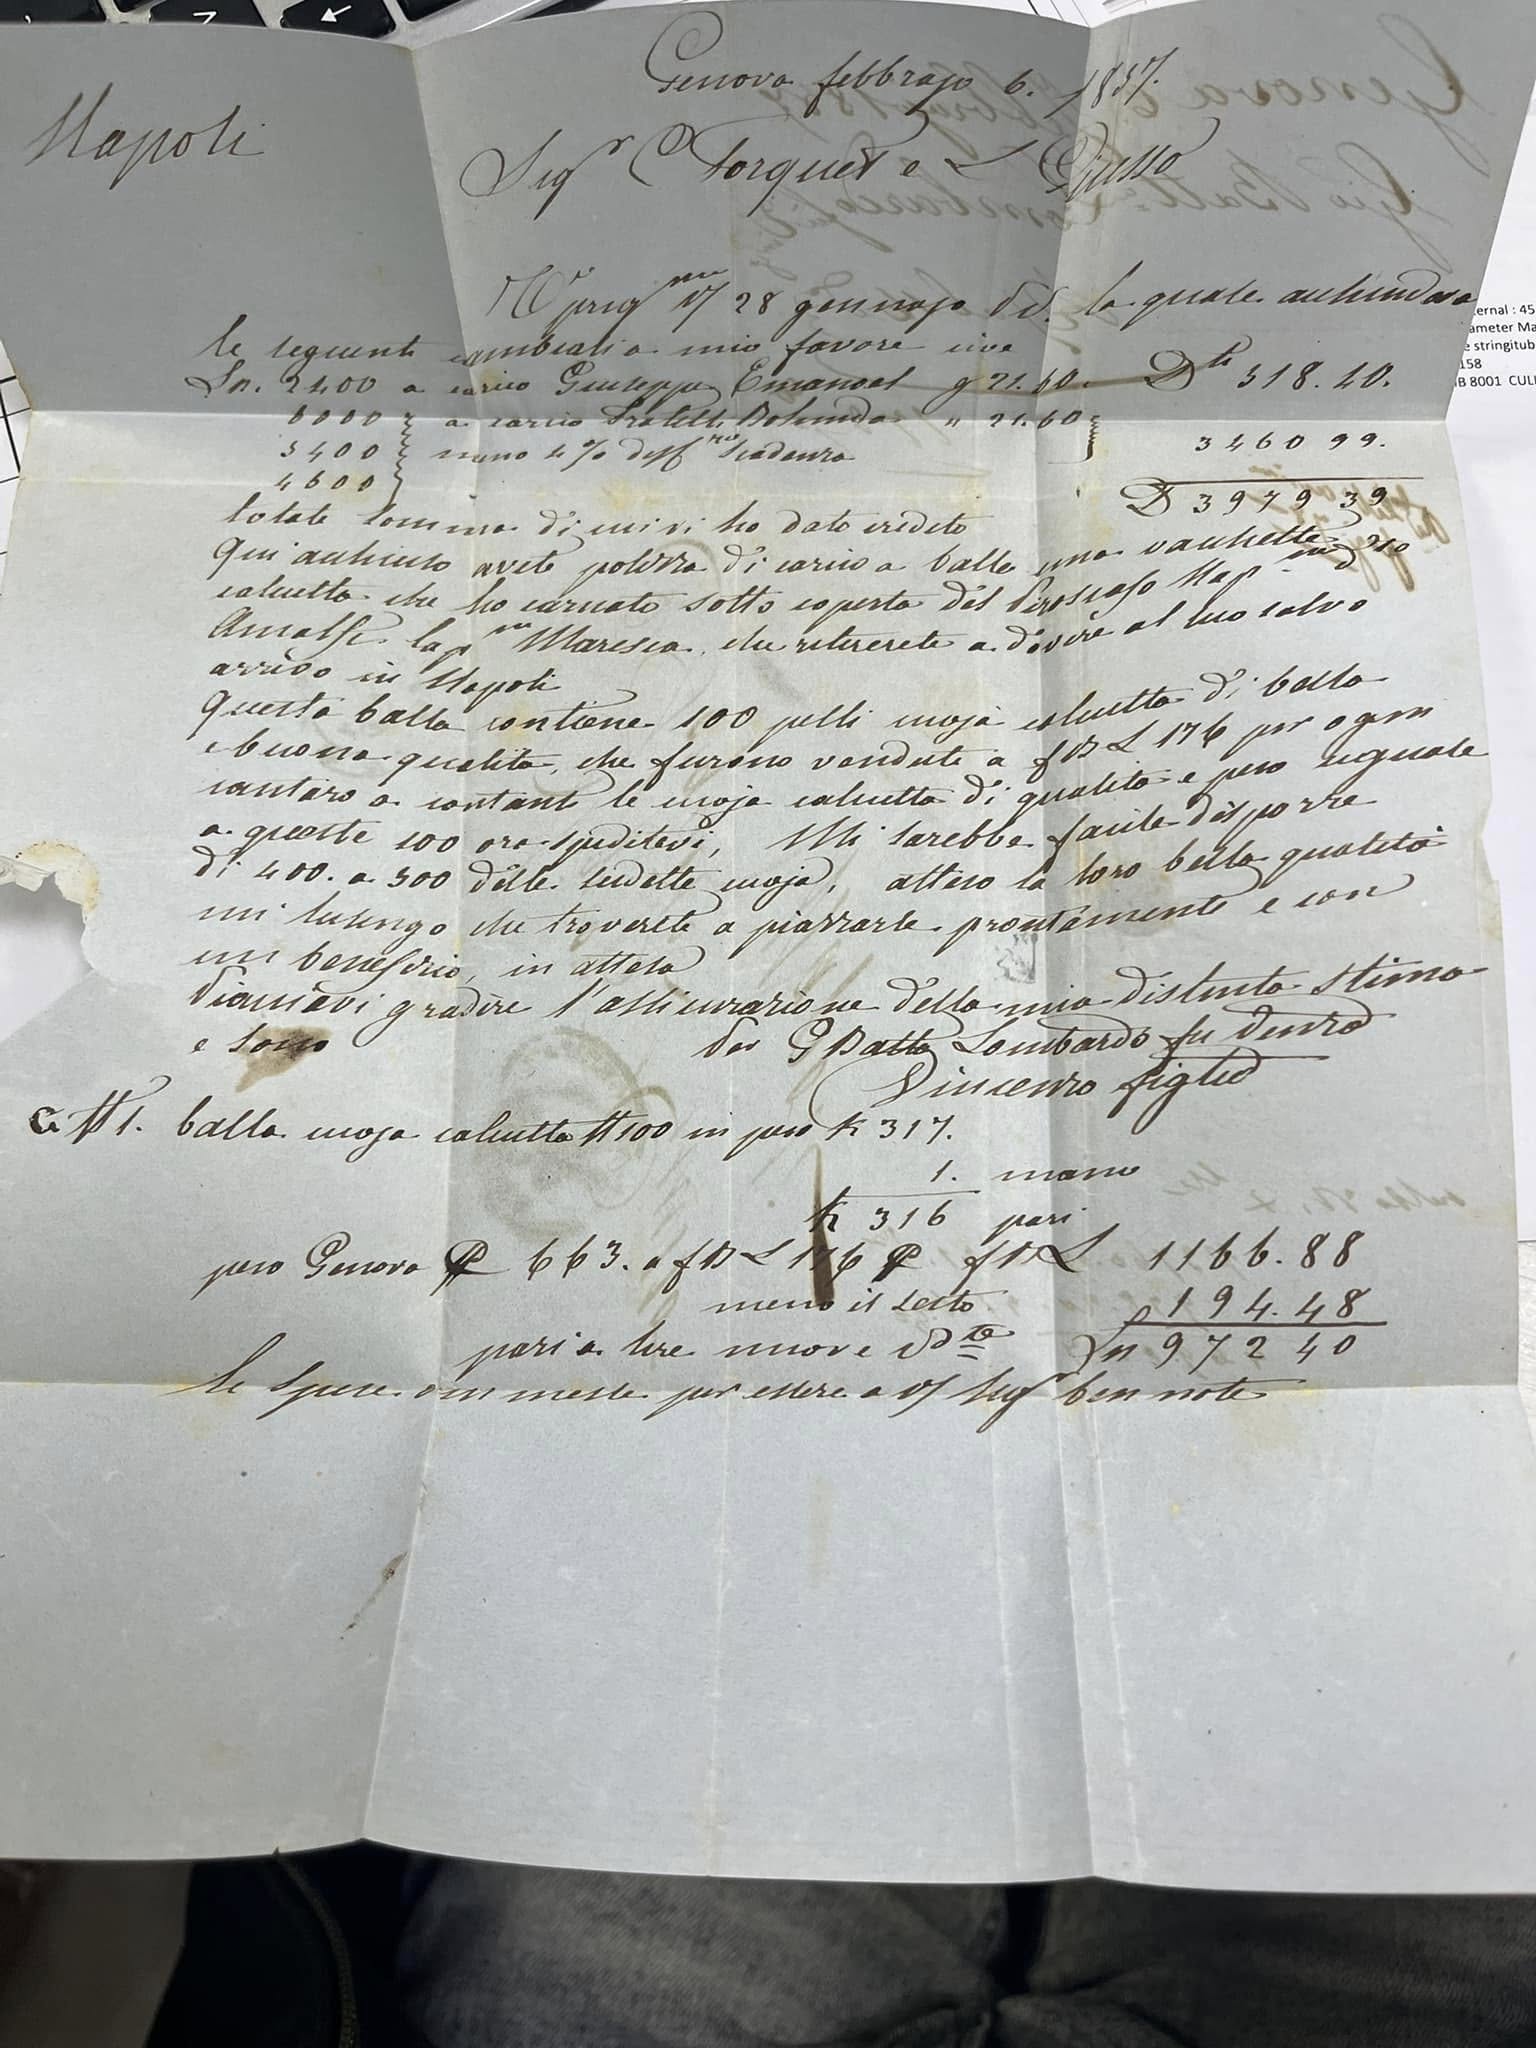 Genova febbrajo 6. 1857.
Napoli
Sigr C Forquet e L Giusso
28 gennajo la quale acchiudeva
le seguenti cambiali a mio favore cioè
Ln. 2400 a carico Giuseppe Emanuel g 21.60. Dti 518.40.
8000 a carico Fratelli " 21.60
3400 meno 4% scadenza 3460 99.
4600
D 3979 39
totale somma di cui vi ho dato credito
Qui acchiuso avete polizza di carico a balla una vacchette
calcutta che ho caricato sotto coperta del Piroscafo Nap no d'to
Amalfi Capno Maresca, che ritirerete a dovere al suo salvo
arrivo in Napoli
Questa balla contiene 100 pelli moja calcutta di bella
e buona qualità, che furono vendute a fB L 176 per ogni
cantaro a contanti le moja calcutta di qualità e peso uguale
a queste 100 ora speditevi, Mi sarebbe facile disporre
di 400. a 500 delle sudette moja, atteso la loro bella qualità
mi lusingo che troverete a piazzarle prontamente e con
un beneficio, in attesa
Piacciavi gradire l'assicurazione della mia distinta stima
e sono
per G Batta Lombardo fu
Vincenzo figlio
G N 1. balla moja calcutta N 100 in peso K 317.
1. meno
K 316 pari
peso Genova 663. a fB L 176 fB L 1166.88
meno il sesto 194.48
pari a lire nuove Ln 972 40
le spese ommesse per essere a VS Sigr ben note